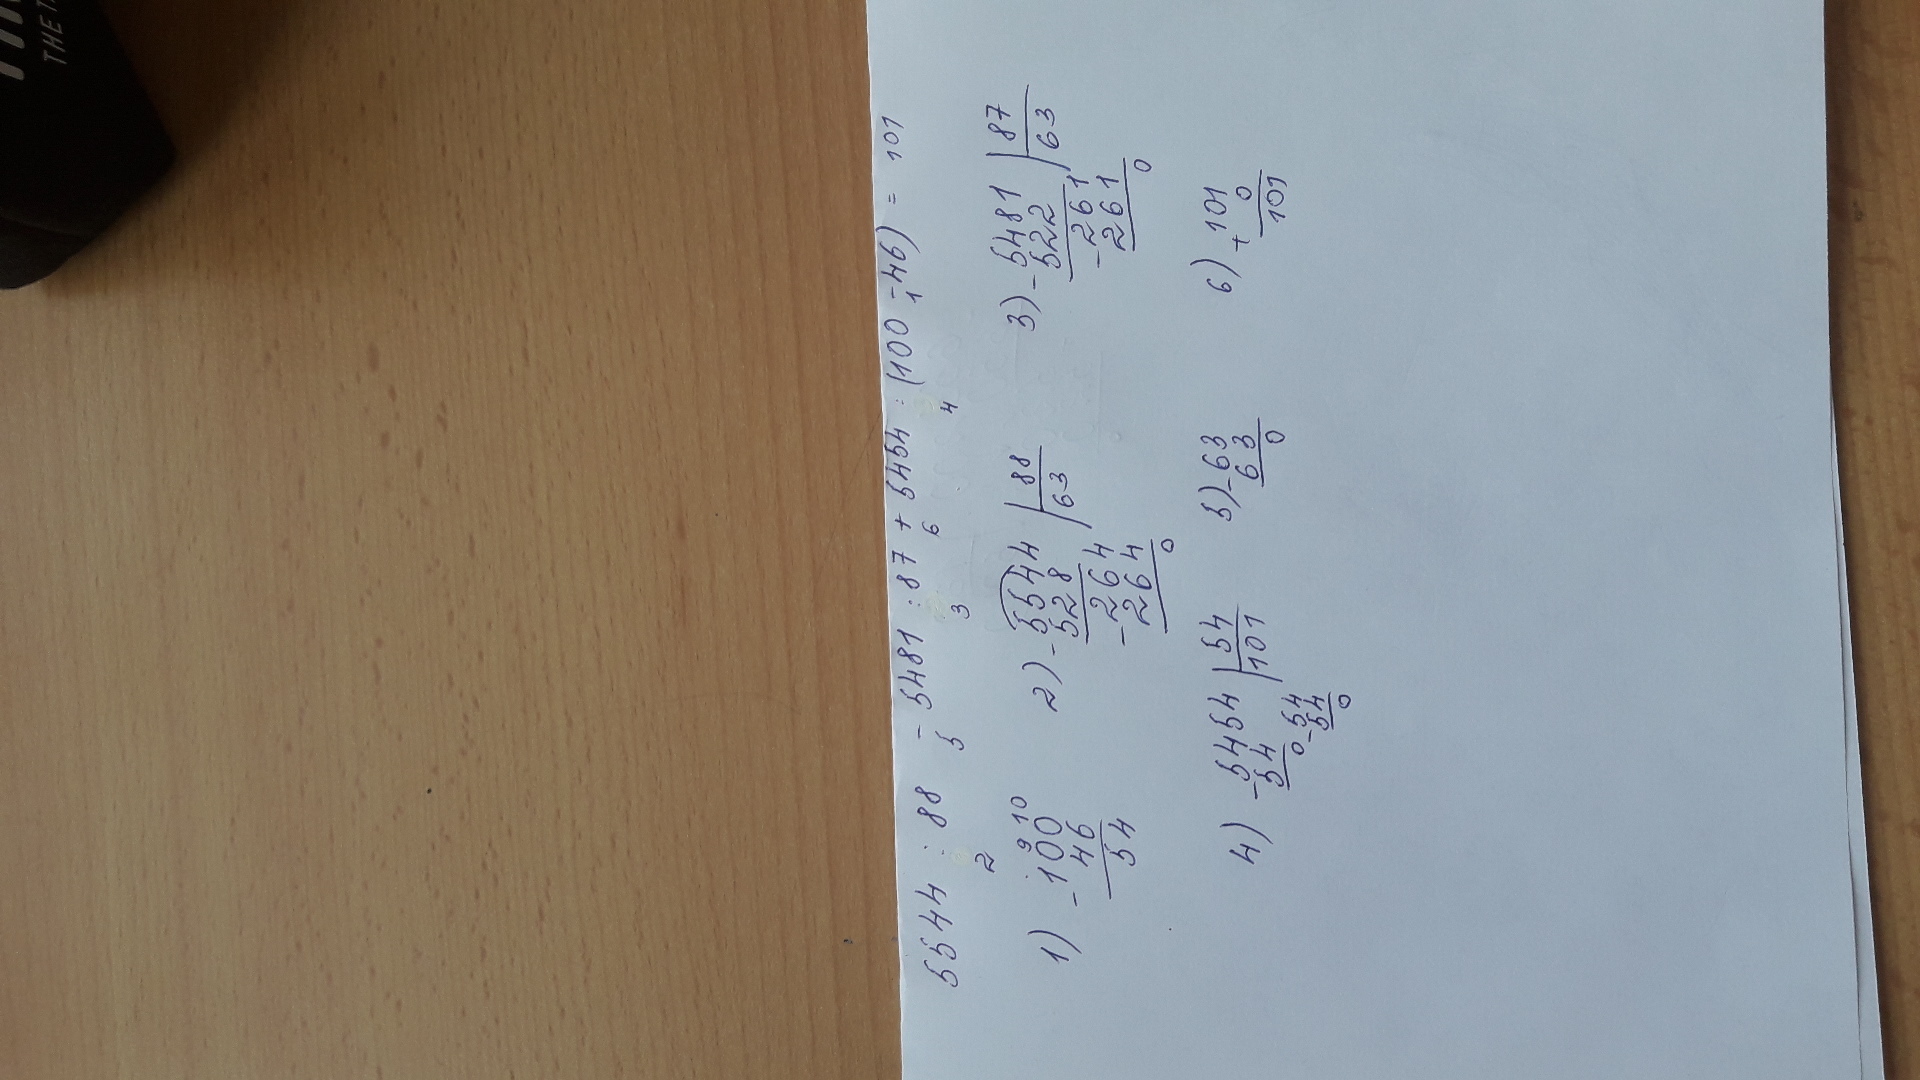 5544 : 88 - 5481 : 87 + 5454 : (100 - 46) = 101
2 5 3 6 4 1
1) 2) 3)
9 10
- 100
46
54
- 5544 | 88
528 | 63
- 264
264
0
- 5481 | 87
522 | 63
- 261
261
0
4) 5) 6)
- 5454 | 54
54 | 101
0
- 54
54
0
- 63
63
0
+ 101
0
101
THE